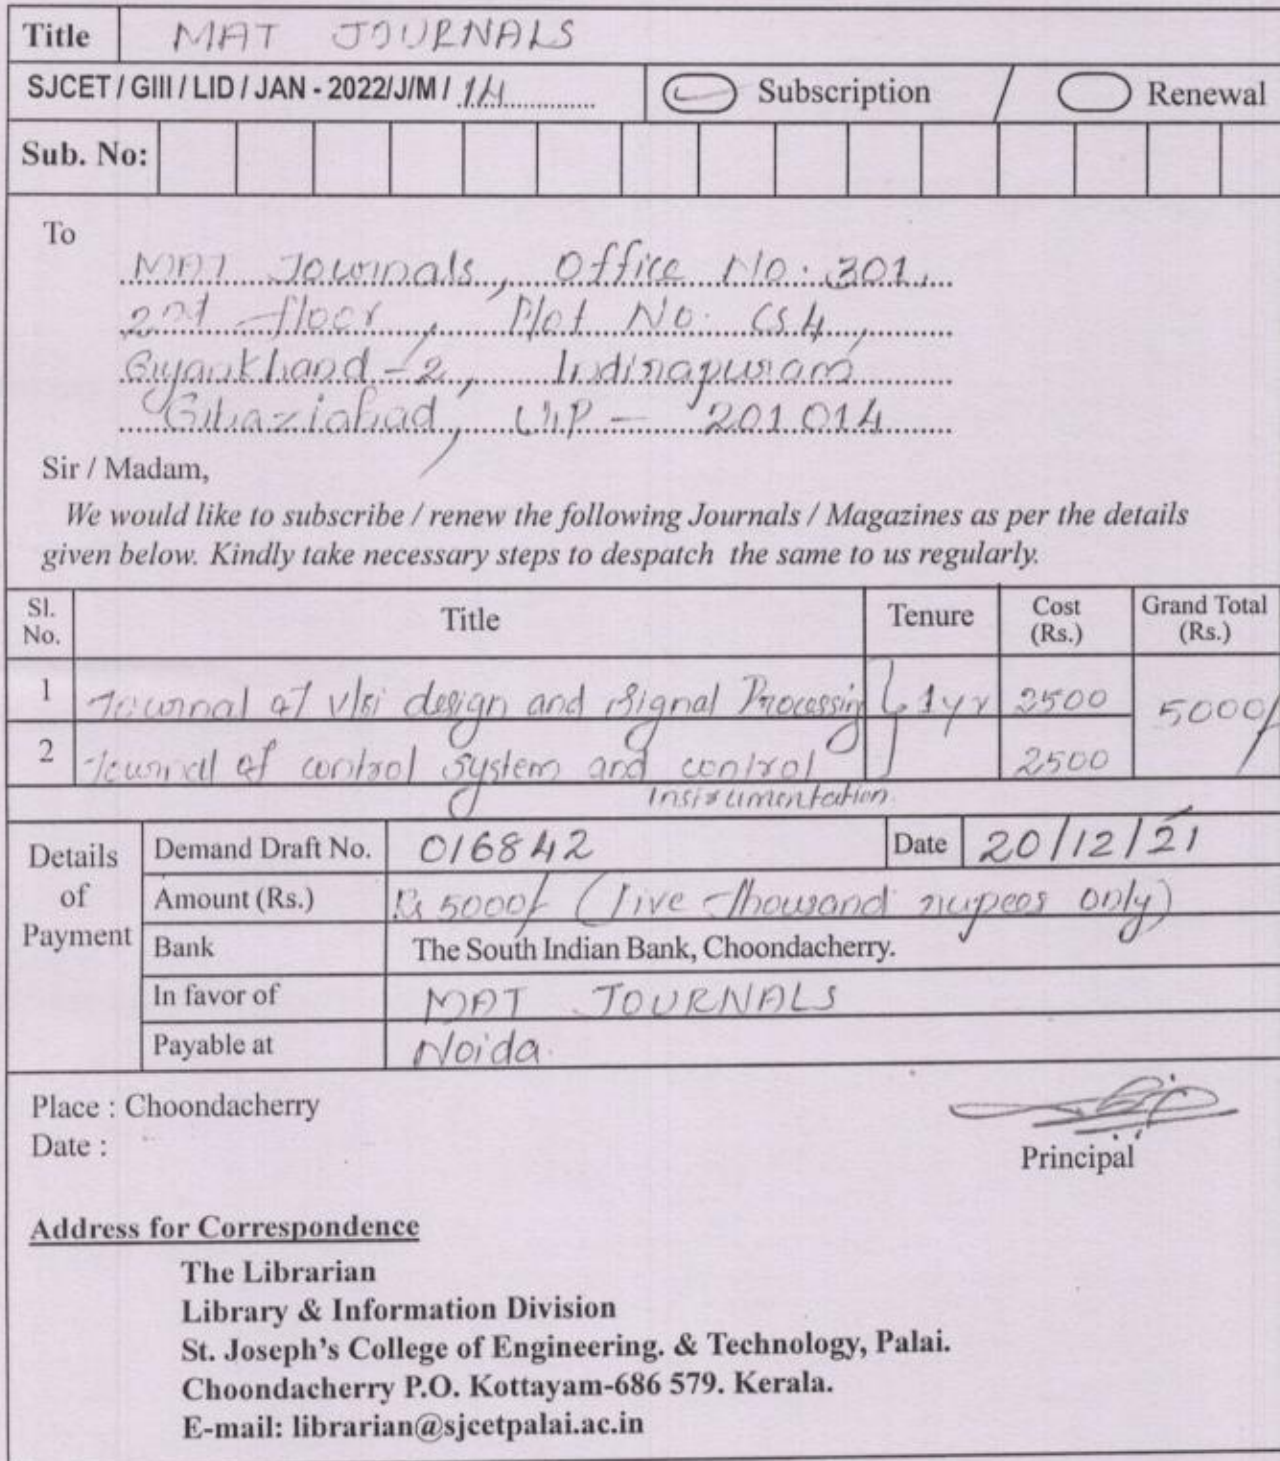 Title MAT JOURNALS
SJCET / GIII / LID / JAN - 2022/J/M / 14 Subscription / Renewal
Sub. No:
To
MAT Journals, Office No: 301,
2nd floor, Plot No. CS4,
Gyankhand - 2, Indirapuram
Ghaziabad, U.P - 201014
Sir / Madam,
We would like to subscribe / renew the following Journals / Magazines as per the details
given below. Kindly take necessary steps to despatch the same to us regularly.
Sl. No. Title Tenure Cost (Rs.) Grand Total (Rs.)
1 Journal of vlsi design and Signal Processing 1 yr 2500 5000/
2 Journal of control system and control 2500
Instrumentation.
Details of Payment
Demand Draft No. 016842 Date 20/12/21
Amount (Rs.) Rs 5000/- (five thousand rupees only)
Bank The South Indian Bank, Choondacherry.
In favor of MAT JOURNALS
Payable at Noida.
Place : Choondacherry
Date :
Principal
Address for Correspondence
The Librarian
Library & Information Division
St. Joseph's College of Engineering. & Technology, Palai.
Choondacherry P.O. Kottayam-686 579. Kerala.
E-mail: librarian@sjcetpalai.ac.in